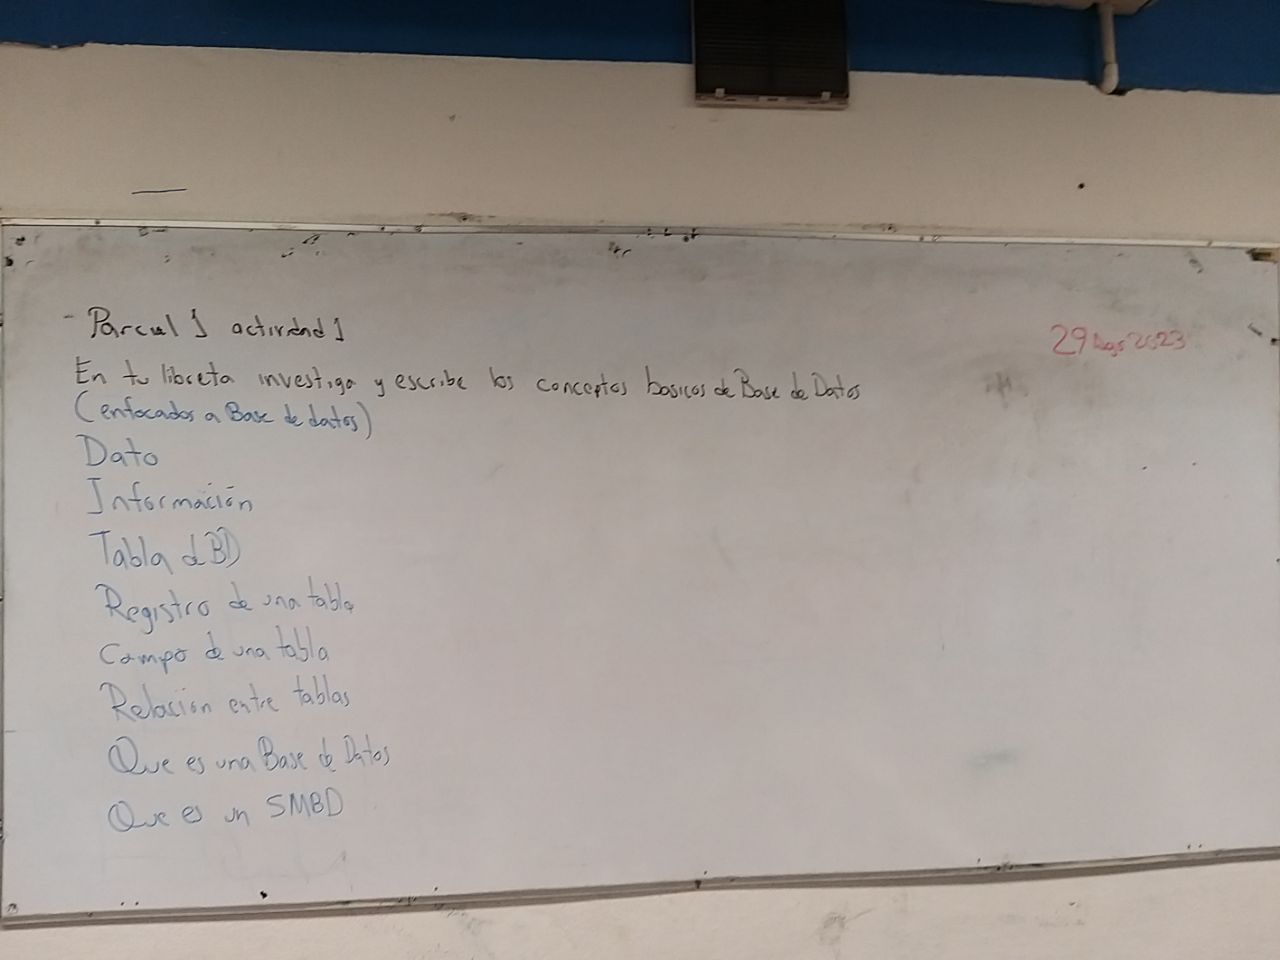 - Parcial 1 actividad 1
29 Ago 2023
En tu libreta investiga y escribe los conceptos basicos de Base de Datos
(enfocados a Base de datos)
Dato
Información
Tabla d BD
Registro de una tabla
Campo de una tabla
Relación entre tablas
Que es una Base de Datos
Que es un SMBD